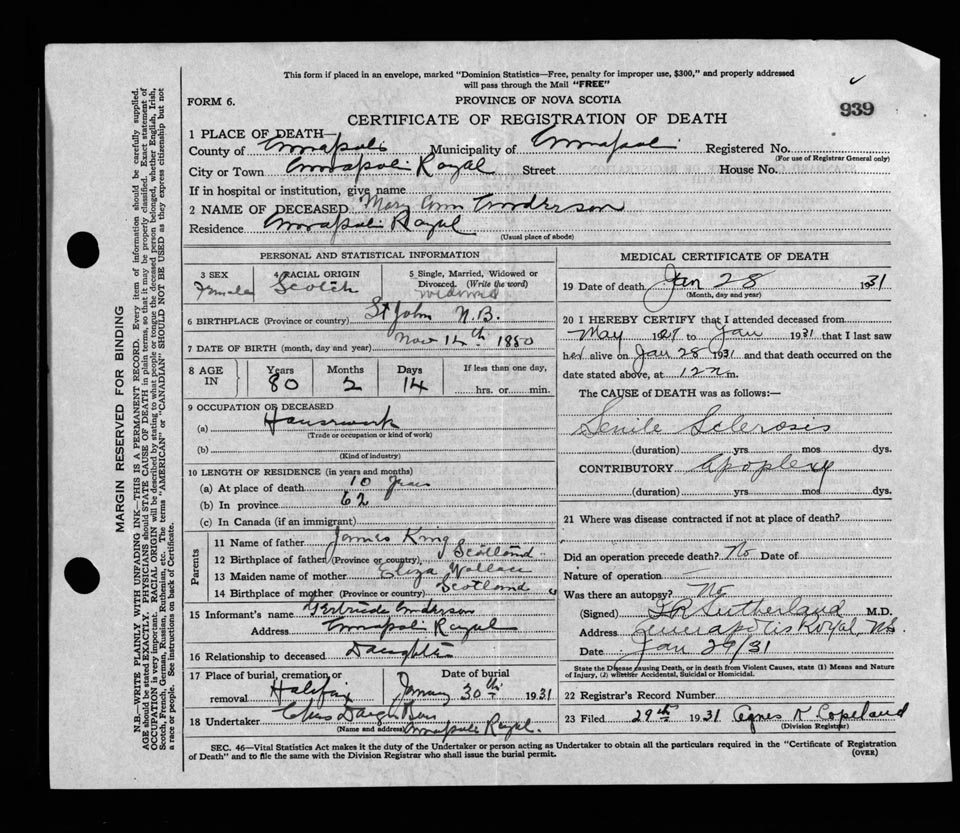 This form if placed in an envelope, marked "Dominion Statistics—Free, penalty for improper use, $300," and properly addressed
will pass through the Mail "FREE"
FORM 6.
PROVINCE OF NOVA SCOTIA
939
CERTIFICATE OF REGISTRATION OF DEATH
1 PLACE OF DEATH—
County of Annapolis Municipality of Annapolis Registered No.
(For use of Registrar General only)
City or Town Annapolis Royal Street House No.
If in hospital or institution, give name
2 NAME OF DECEASED Mary Ann Anderson
Residence Annapolis Royal
(Usual place of abode)
PERSONAL AND STATISTICAL INFORMATION
3 SEX
Female
4 RACIAL ORIGIN
Scotch
5 Single, Married, Widowed or
Divorced. (Write the word)
widowed
6 BIRTHPLACE (Province or country) St John N.B.
7 DATE OF BIRTH (month, day and year) Nov 14th 1850
8 AGE IN
Years Months Days
80 2 14
If less than one day,
hrs. or min.
9 OCCUPATION OF DECEASED
(a) Housework
(Trade or occupation or kind of work)
(b)
(Kind of industry)
10 LENGTH OF RESIDENCE (in years and months)
(a) At place of death 10 years
(b) In province 62
(c) In Canada (if an immigrant)
Parents
11 Name of father James King
12 Birthplace of father (Province or country) Scotland
13 Maiden name of mother Eliza Wallace
14 Birthplace of mother (Province or country) Scotland
15 Informant's name Gertrude Anderson
Address Annapolis Royal
16 Relationship to deceased Daughter
17 Place of burial, cremation, or
removal Halifax
Date of burial
January 30th 1931
18 Undertaker
(Name and address) Annapolis Royal.
MEDICAL CERTIFICATE OF DEATH
19 Date of death Jan 28 1931
(Month, day and year)
20 I HEREBY CERTIFY that I attended deceased from
May 1927 to Jan 1931 that I last saw
her alive on Jan 28 1931 and that death occurred on the
date stated above, at 12 N m.
The CAUSE of DEATH was as follows:—
Senile Sclerosis
(duration) yrs mos dys.
CONTRIBUTORY Apoplexy
(duration) yrs mos dys.
21 Where was disease contracted if not at place of death?
Did an operation precede death? No Date of
Nature of operation
Was there an autopsy? No
(Signed) Sutherland M.D.
Address Annapolis Royal, N.S.
Date Jan 29/31
State the Disease causing Death, or in death from Violent Causes, state (1) Means and Nature
of Injury, (2) whether Accidental, Suicidal or Homicidal.
22 Registrar's Record Number
23 Filed 29th 1931 Agnes K Copeland
(Division Registrar)
SEC. 46—Vital Statistics Act makes it the duty of the Undertaker or person acting as Undertaker to obtain all the particulars required in the "Certificate of Registration
of Death" and to file the same with the Division Registrar who shall issue the burial permit.
(OVER)
MARGIN RESERVED FOR BINDING
N.B.—WRITE PLAINLY WITH UNFADING INK—THIS IS A PERMANENT RECORD. Every item of information should be carefully supplied.
AGE should be stated EXACTLY. PHYSICIANS should STATE CAUSE OF DEATH in plain terms, so that it may be properly classified. Exact statement of
OCCUPATION is very important. RACIAL ORIGIN will be described by stating to what people or tongue the deceased person belonged, whether English, Irish,
Scotch, French, German, Russian, Ruthenian, etc. The terms "AMERICAN" or "CANADIAN" SHOULD NOT BE USED as they express citizenship but not
a race or people. See instructions on back of Certificate.